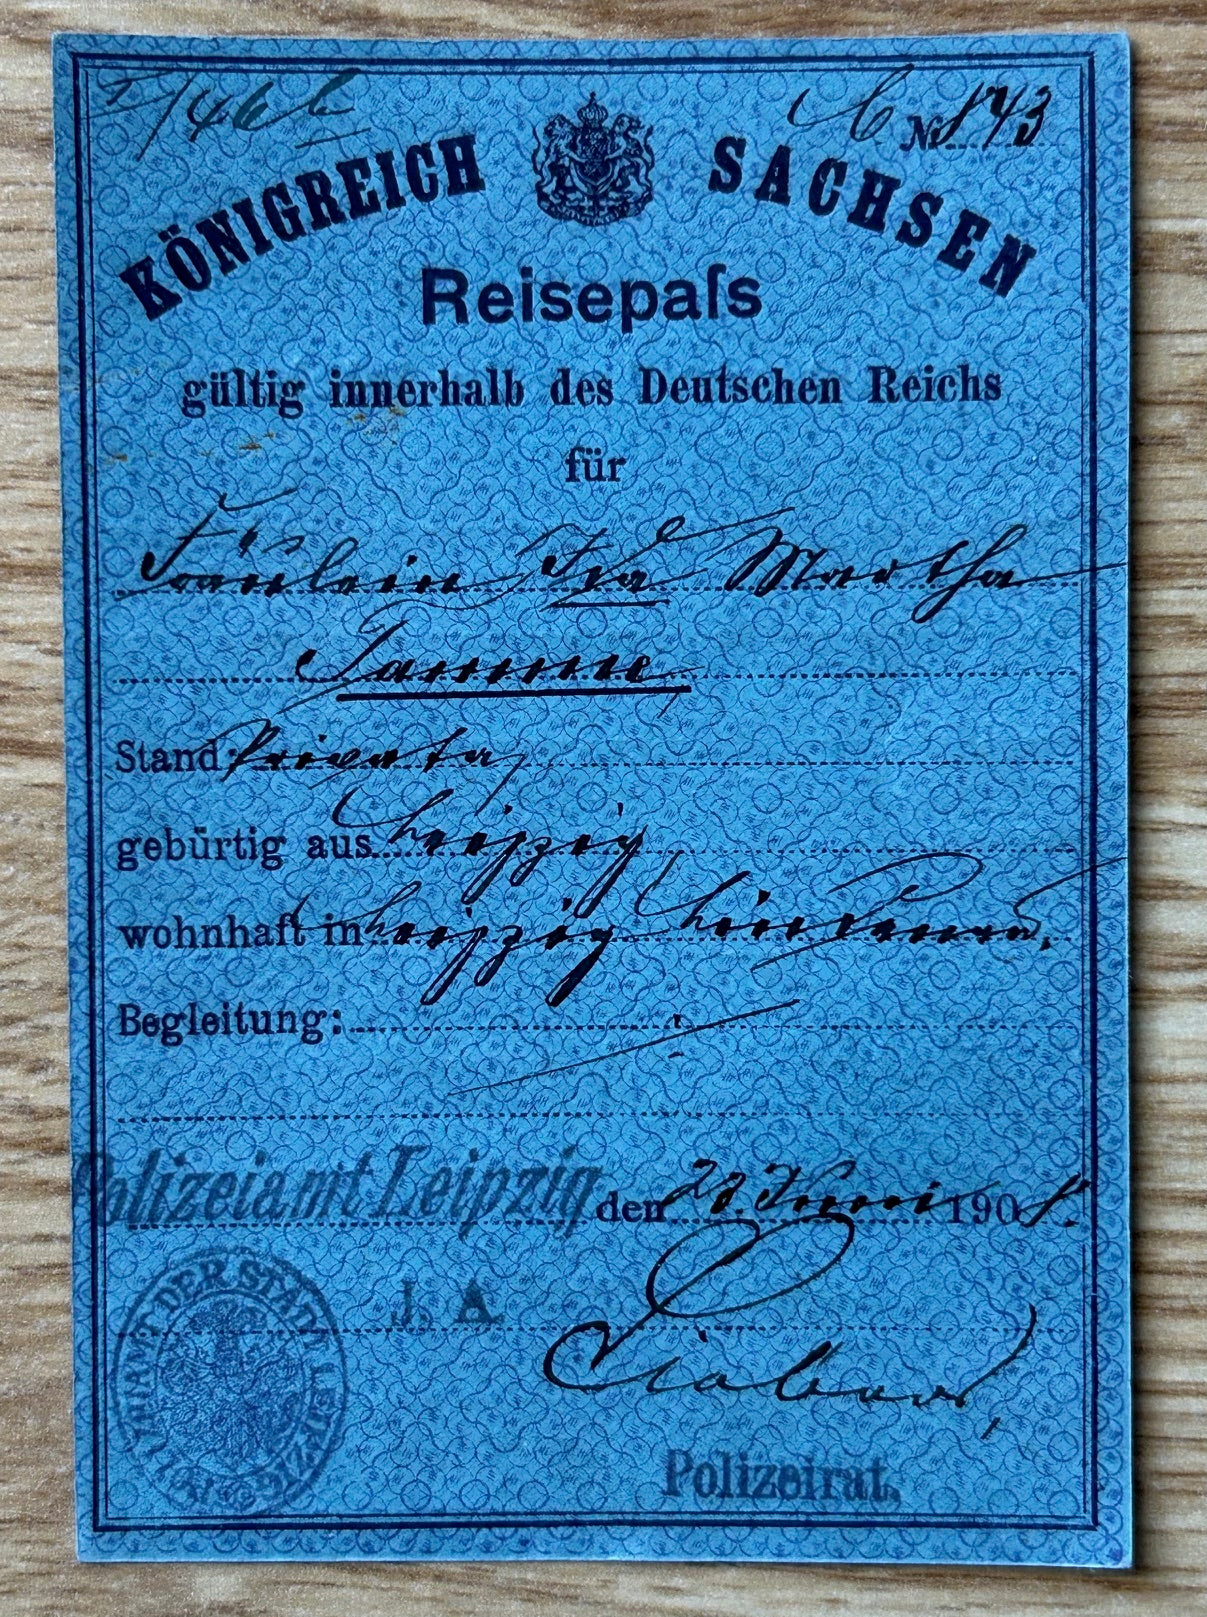 № 843
KÖNIGREICH SACHSEN
Reisepaſs
gültig innerhalb des Deutschen Reichs
für
Fräulein Ida Martha
Tamme
Stand: Privata,
gebürtig aus Leipzig
wohnhaft in Leipzig Lindenau.
Begleitung:
Polizeiamt Leipzig den Juni 1908.
J. A.
POLIZEIAMT DER STADT LEIPZIG
Polizeirat.